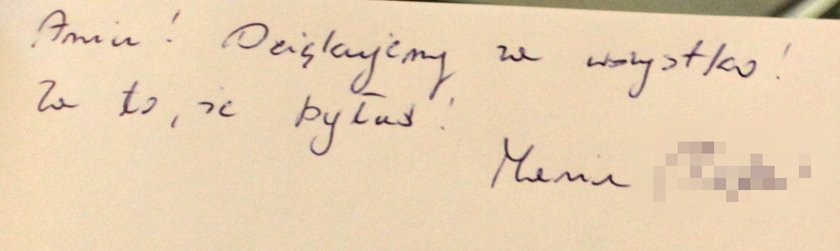 Aniu! Dziękujemy za wszystko!
Za to, że byłaś!